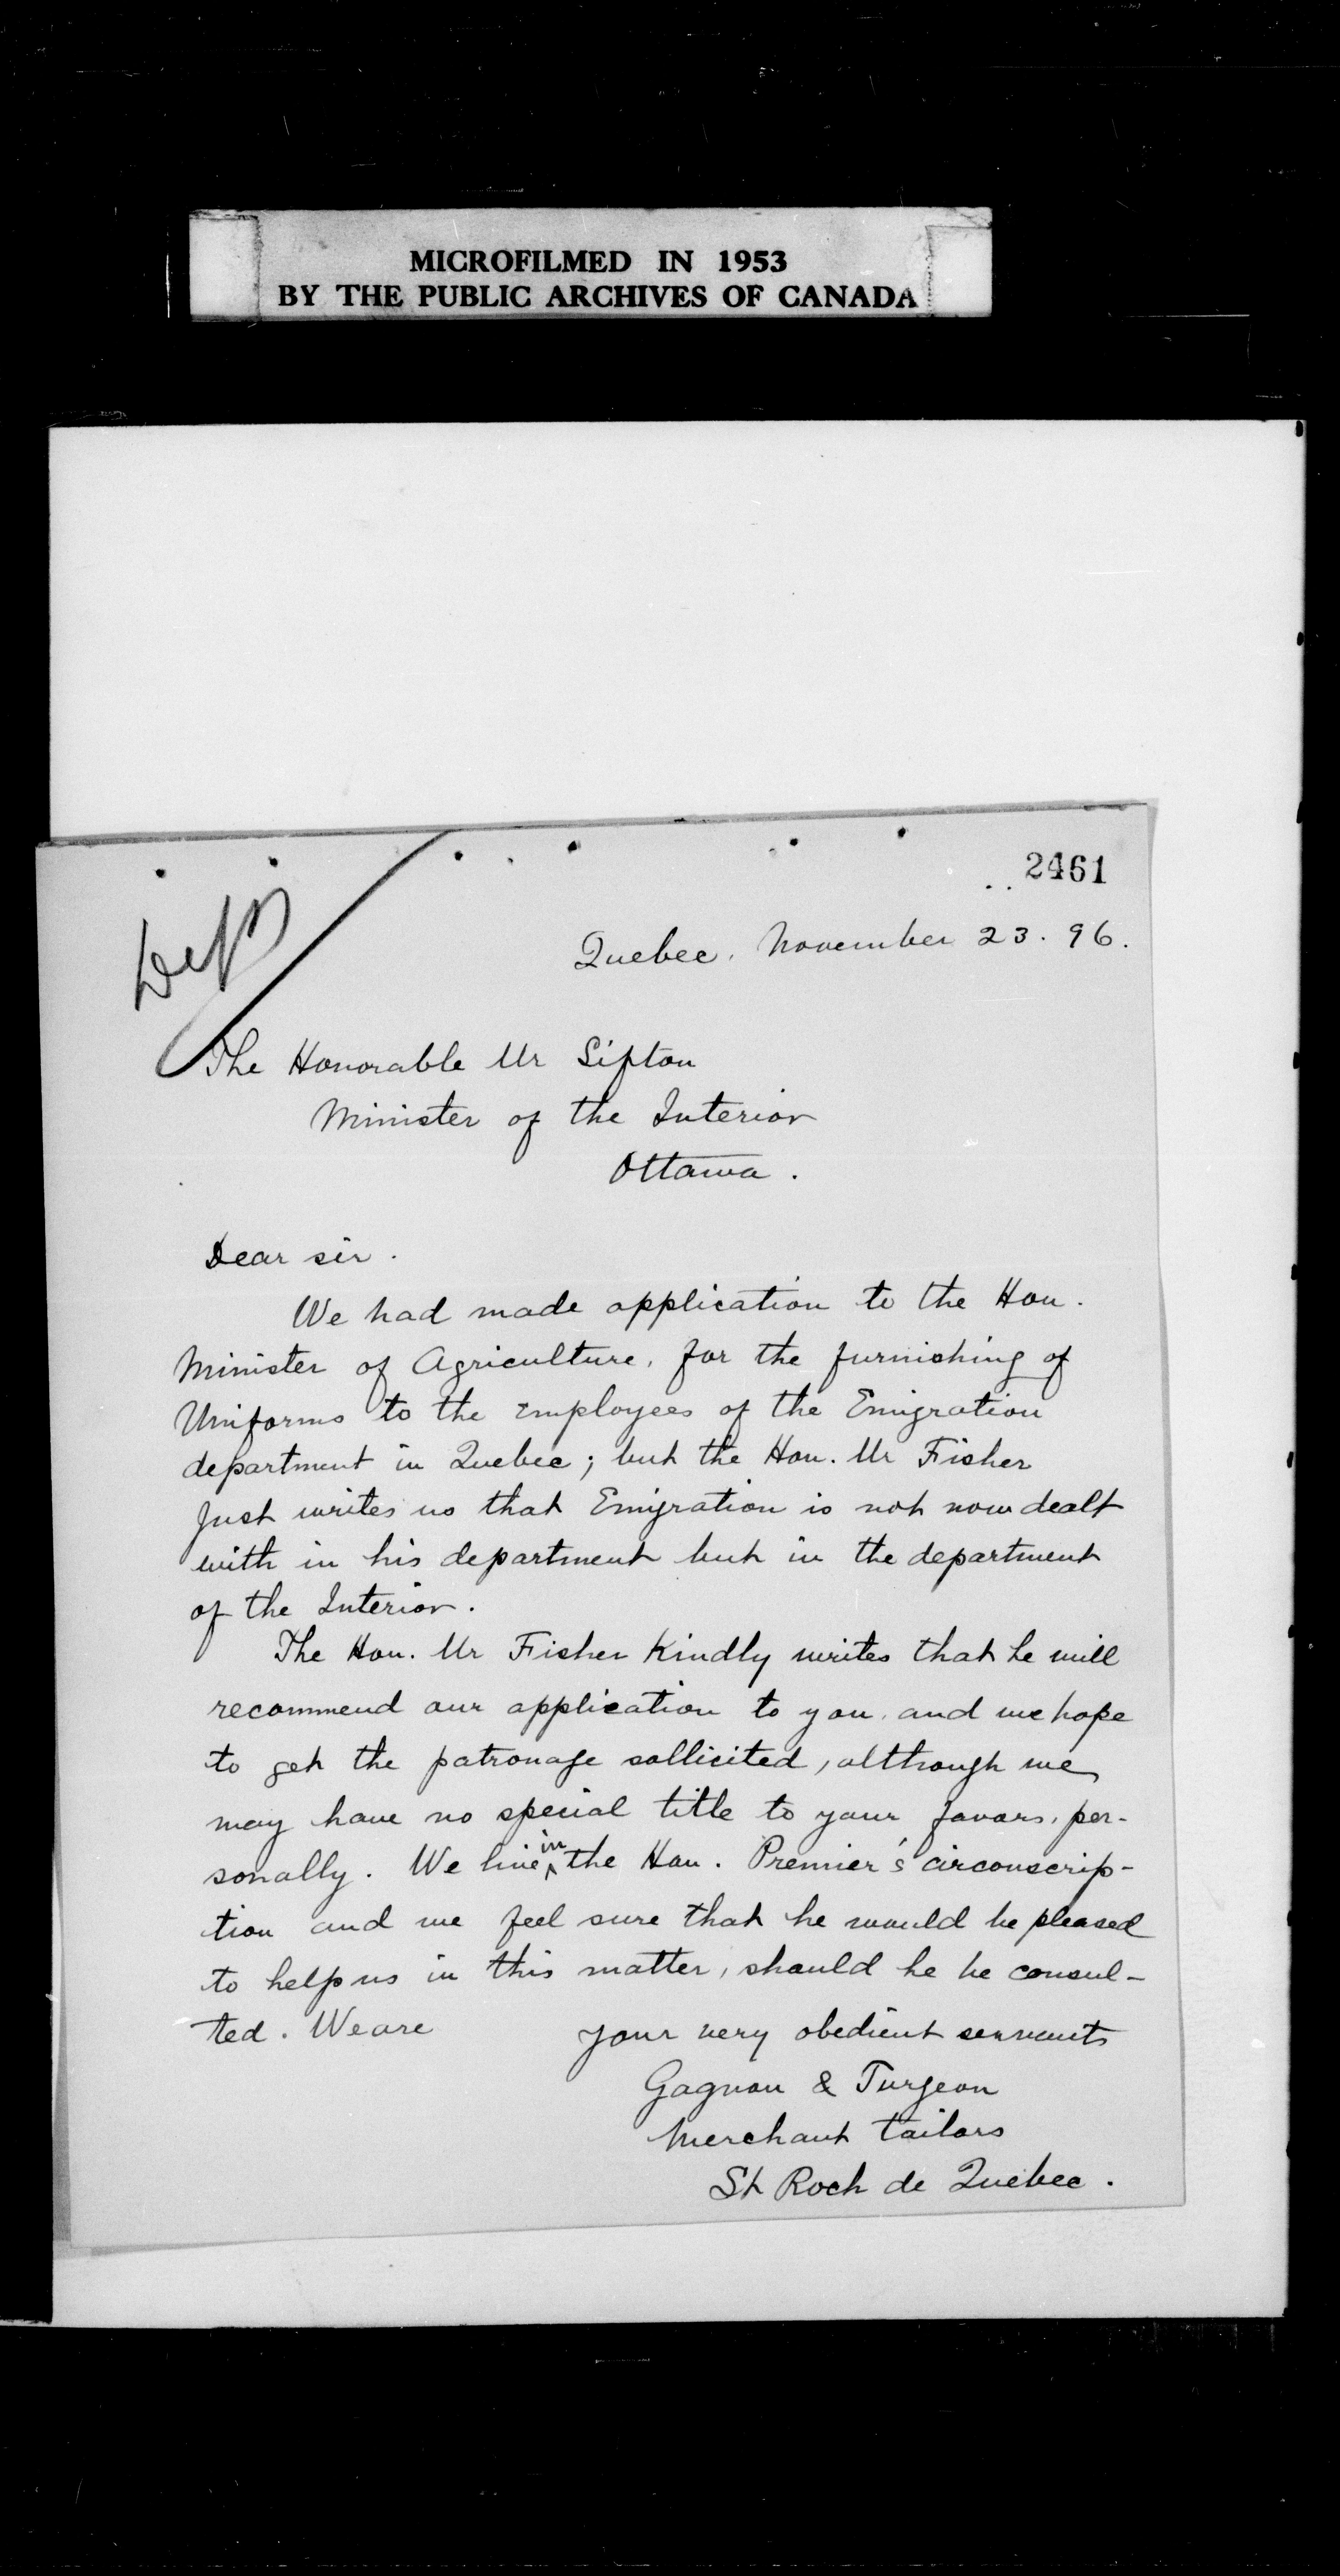 MICROFILMED IN 1953
BY THE PUBLIC ARCHIVES OF CANADA
2461
Quebec, November 23. 96.
The Honorable Mr Sifton
Minister of the Interior
Ottawa.
Dear sir.
We had made application to the Hon.
Minister of Agriculture, for the furnishing of
Uniforms to the employees of the Emigration
department in Quebec; but the Hon. Mr Fisher
just writes us that Emigration is not now dealt
with in his department but in the department
of the Interior.
The Hon. Mr Fisher Kindly writes that he will
recommend our application to you, and we hope
to get the patronage sollicited, although we
may have no special title to your favors, per-
sonally. We live in the Hon. Premier's circonscrip-
tion and we feel sure that he would be pleased
to help us in this matter, should he be consul-
ted. We are your very obedient servants
Gagnon & Turgeon
Merchant tailors
St Roch de Quebec.